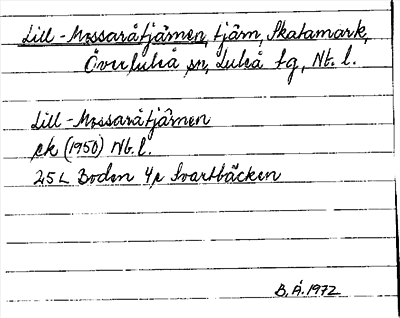 Lill-Mossaråtjärnen, tjärn, Skatamark,
Överluleå sn, Luleå tg, Nb. l.
Lill-Mossaråtjärnen
ek (1950) Nb. l.
25 L Boden Svartbäcken
B. Å. 1972